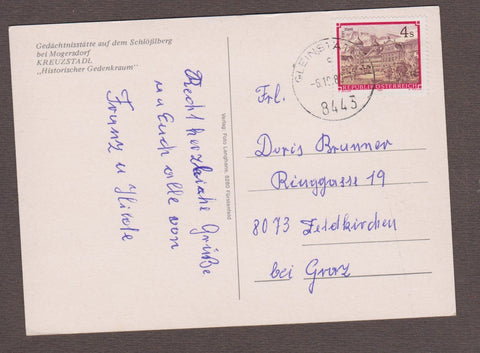 Gedächtnisstätte auf dem Schlößlberg
bei Mogersdorf
KREUZSTADL
„Historischer Gedenkraum"
Recht herzliche Grüße
an Euch alle von
Franz u
Verlag: Foto Langhans, 8280 Fürstenfeld
GLEINSTÄ
-6.10.8
8443
4 S
REPUBLIK ÖSTERREICH
Frl.
Doris Brunner
Ringgasse 19
8073 Feldkirchen
bei Graz